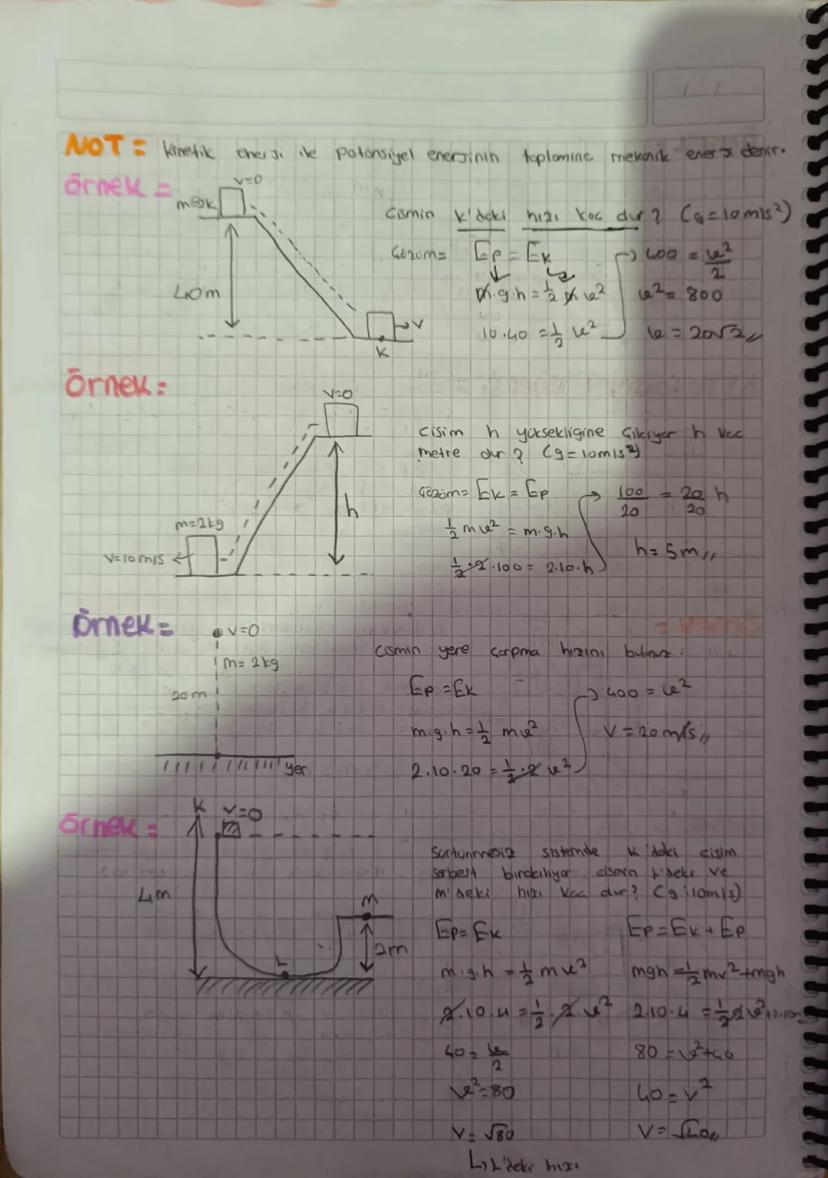 NOT = Kinetik enerji ile potansiyel enerjinin toplamına mekanik enerji denir.
Örnek =
V=0
40m
V
K
Cismin K'deki hızı kaç dur? (g=10m/s²)
Çözüm= Ep = Ek
m.g.h = 1/2 m v²
10.40 = 1/2 v²
400 = v²/2
v² = 800
v = 20√2 //
Örnek:
V=0
h
m=2kg
V=10m/s
Cisim h yüksekliğine çıkıyor h kaç
metre dur? (g=10m/s²)
Çözüm= Ek = Ep
1/2 mv² = m.g.h
1/2.2.100 = 2.10.h
100/20 = 20/20 h
h = 5m //
Örnek =
V=0
m=2kg
20m
yer
Cismin yere çarpma hızını bulunuz.
Ep = Ek
m.g.h = 1/2 mv²
2.10.20 = 1/2.2 v²
400 = v²
V = 20m/s //
Örnek =
K V=0
4m
L
M
2m
Sürtünmesiz sistemde K'daki cisim
serbest bırakılıyor cismin L'deki ve
M'deki hızı kaç dur? (g:10m/s)
Ep = Ek
m.g.h = 1/2 mv²
2.10.4 = 1/2.2 v²
v² = 80
V = √80
L'deki hızı
Ep = Ek + Ep
mgh = 1/2 mv² + mgh
2.10.4 = 1/2 2 v² +2.10
80 = v² + 40
40 = v²
V = √40 //